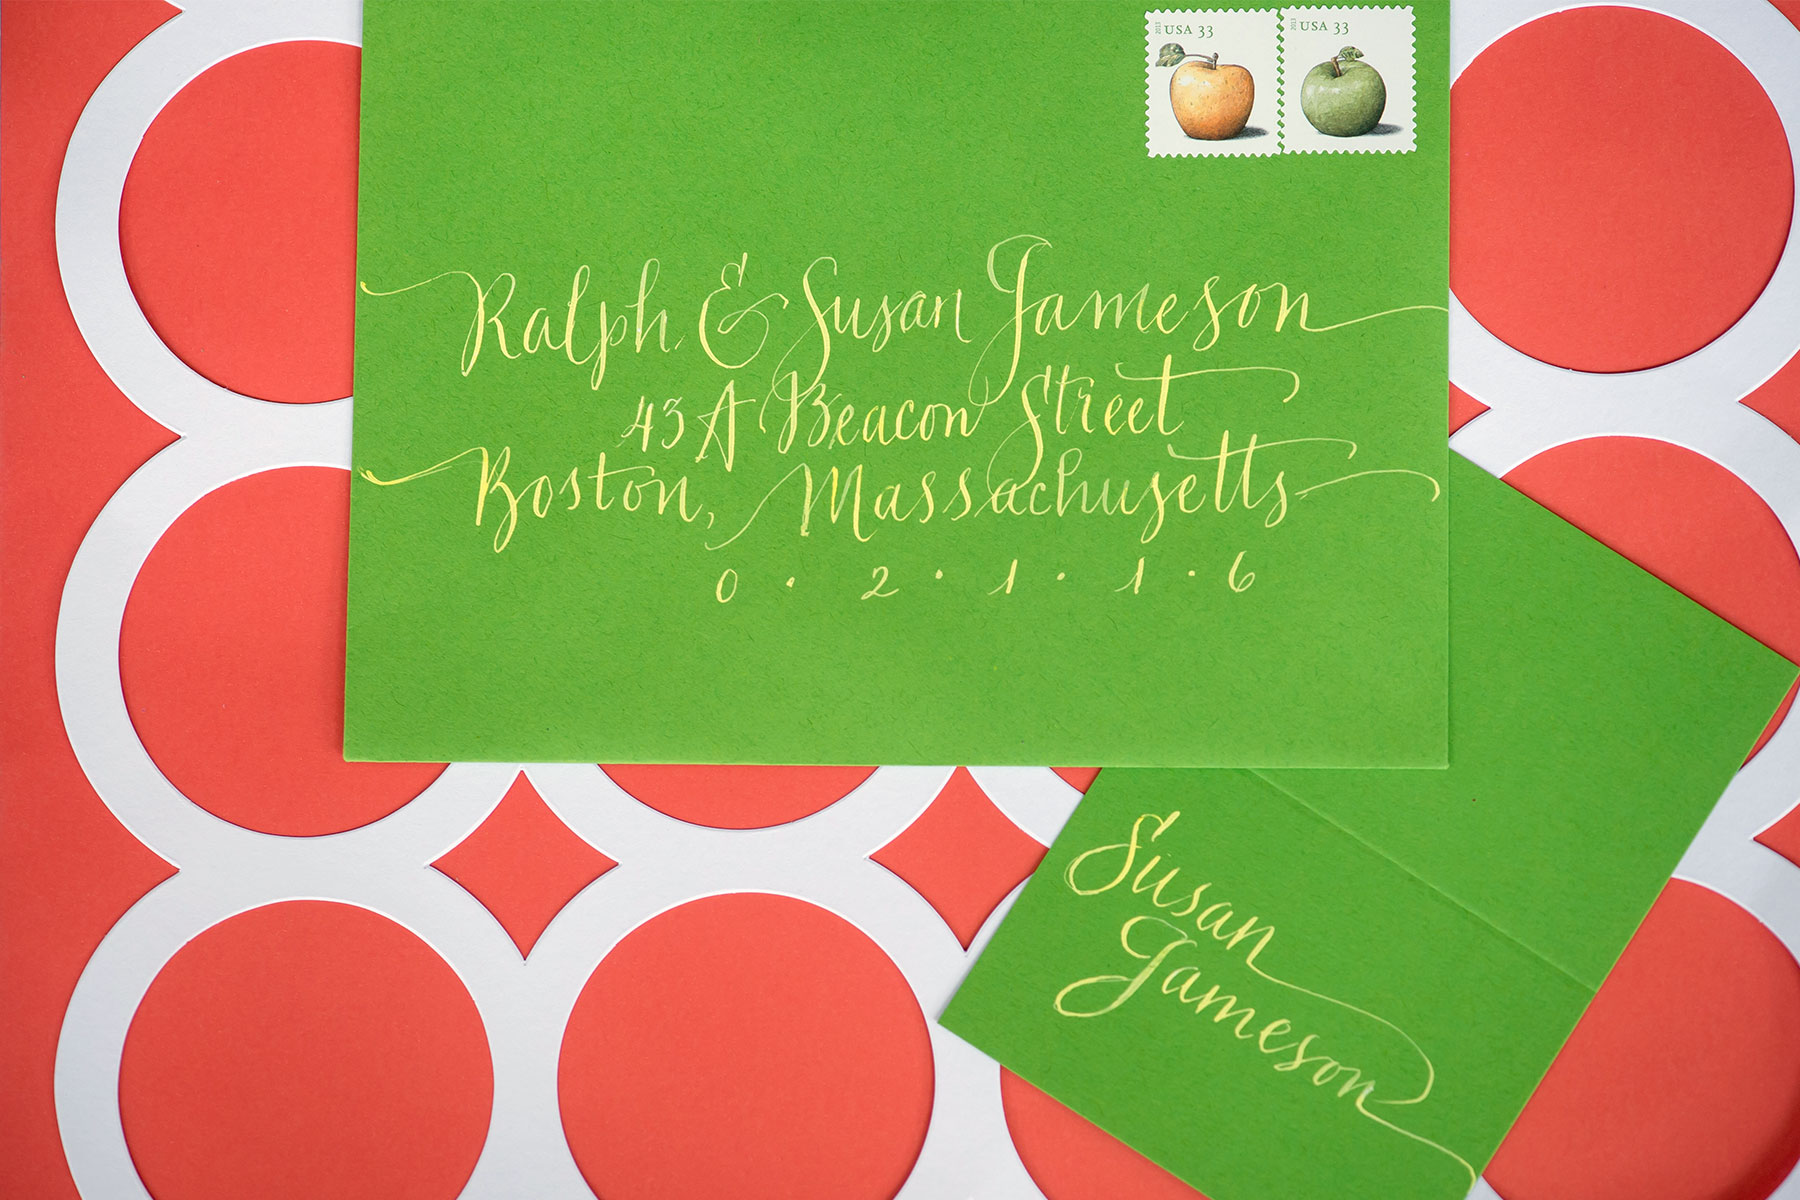 2013 USA 33
2013 USA 33
Ralph & Susan Jameson
43A Beacon Street
Boston, Massachusetts
0 · 2 · 1 · 1 · 6
Susan
Jameson